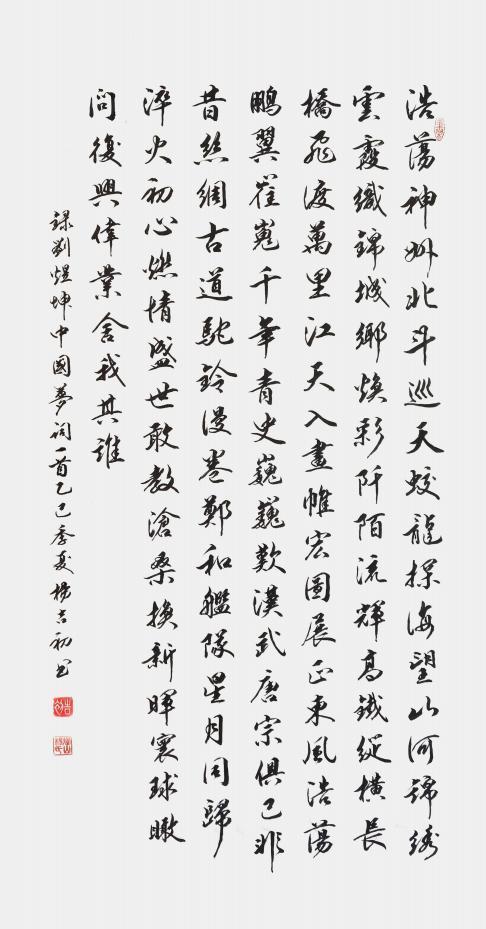 浩蕩神州北斗巡天蛟龍探海望山河錦繡
雲霞織錦城鄉焕彩阡陌流輝高鐵縱橫長
橋飛渡萬里江天入畫帷宏圖展正東風浩蕩
鵬翼崔嵬千年青史巍巍歎漢武唐宗俱已非
昔絲綢古道駝鈴漫卷鄭和艦隊星月同歸
淬火初心燃情盛世敢教滄桑換新暉寰球瞰
問復興偉業舍我其誰
録劉煜坤中國夢詞一首乙巳季夏楊吉初書